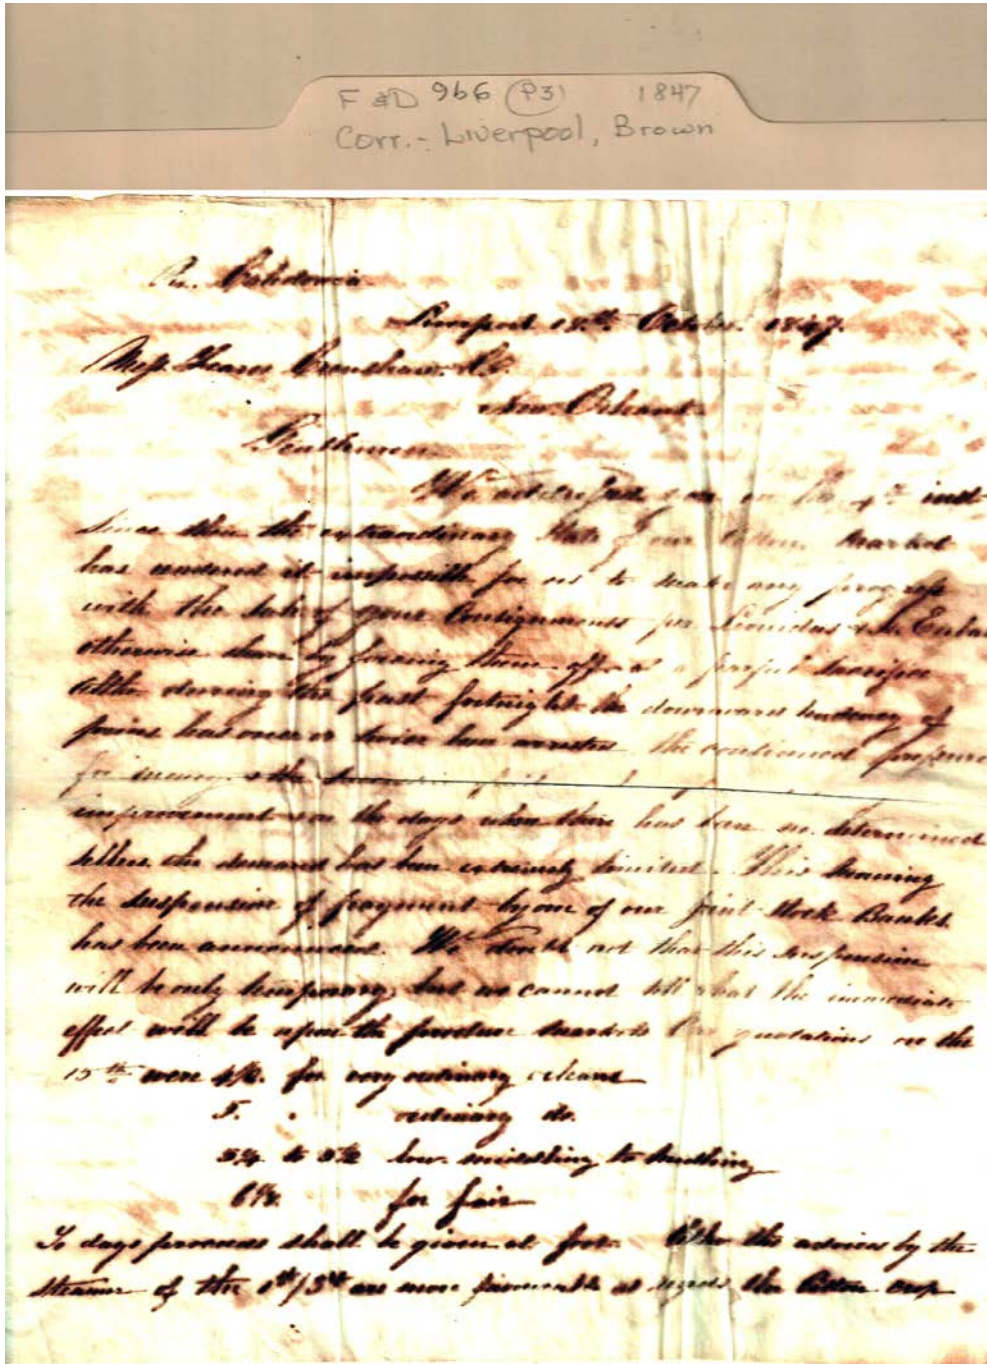 F & D 966 (P3) 1847
Corr.- Liverpool, Brown
Per Caledonia
Liverpool 18th October 1847.
Mess. Crenshaw & Co.
New Orleans
Gentlemen
We addressed you on the 4th inst
since then the extraordinary state of our Cotton Market
has rendered it impossible for us to make any progress
with the sale of your Consignments per Leonidas &
otherwise than by forcing them off at a perfect sacrifice
Altho during the past fortnight the downward tendency of
prices has once or twice been arrested the continued pressure
for money & the
improvement & on the days when there has been no determined
sellers the demand has been extremely limited. This morning
the suspension of payment by one of our Joint Stock Banks
has been announced. We doubt not that this suspension
will be only temporary, but we cannot tell what the immediate
effect will be upon the produce markets Our quotations on the
15th were 4½ for very ordinary orleans
5. " ordinary do.
5¼ to 5½ low middling to middling
for fair
To days prices shall be given at foot. Altho the advices by the
steamer of the are more favourable as regards the Cotton crop